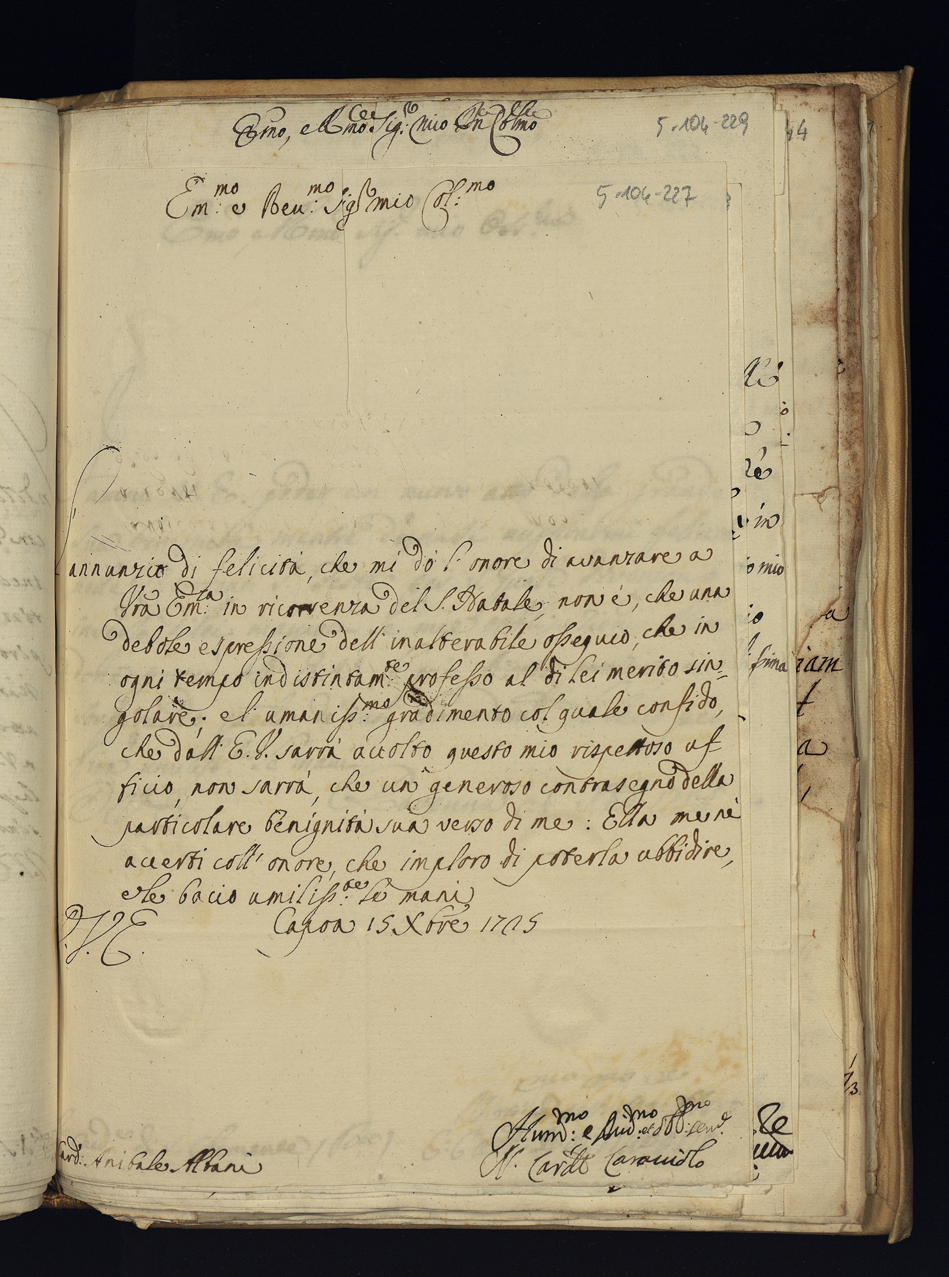 Emo, e Rmo Sig.r mio Colmo
5-104-229
Em:mo e Reu:mo Sig.r mio Col:mo
5-104-227
annunzio di felicità, che mi dò l'onore di avanzare a
Vrā Em:za in ricorrenza del S. Natale, non é, che una
debole espressione dell'inalterabile ossequio, che in
ogni tempo indistintam:te professo al di lei merito sin=
golare; e l'umaniss:mo gradimento col quale confido,
che dall'E. V. sarrà accolto questo mio rispettoso uf
ficio, non sarrà, che un generoso contrasegno della
particolare benignità sua verso di me: Ella me nè
accerti coll'onore, che imploro di poterla ubbidire,
e le bacio umiliss:te le mani
Capoa 15 Xbre 1725
V. E.
Card: Anibale Albani
Hum:mo e
N. Card: Caracciolo